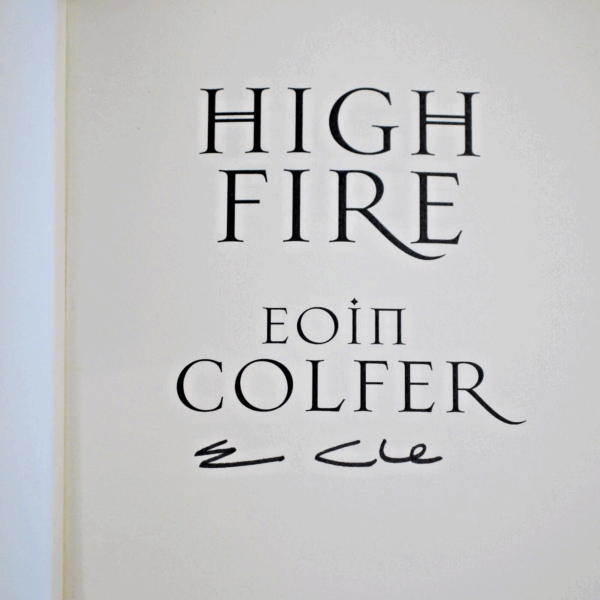 HIGH
FIRE
EOIN
COLFER